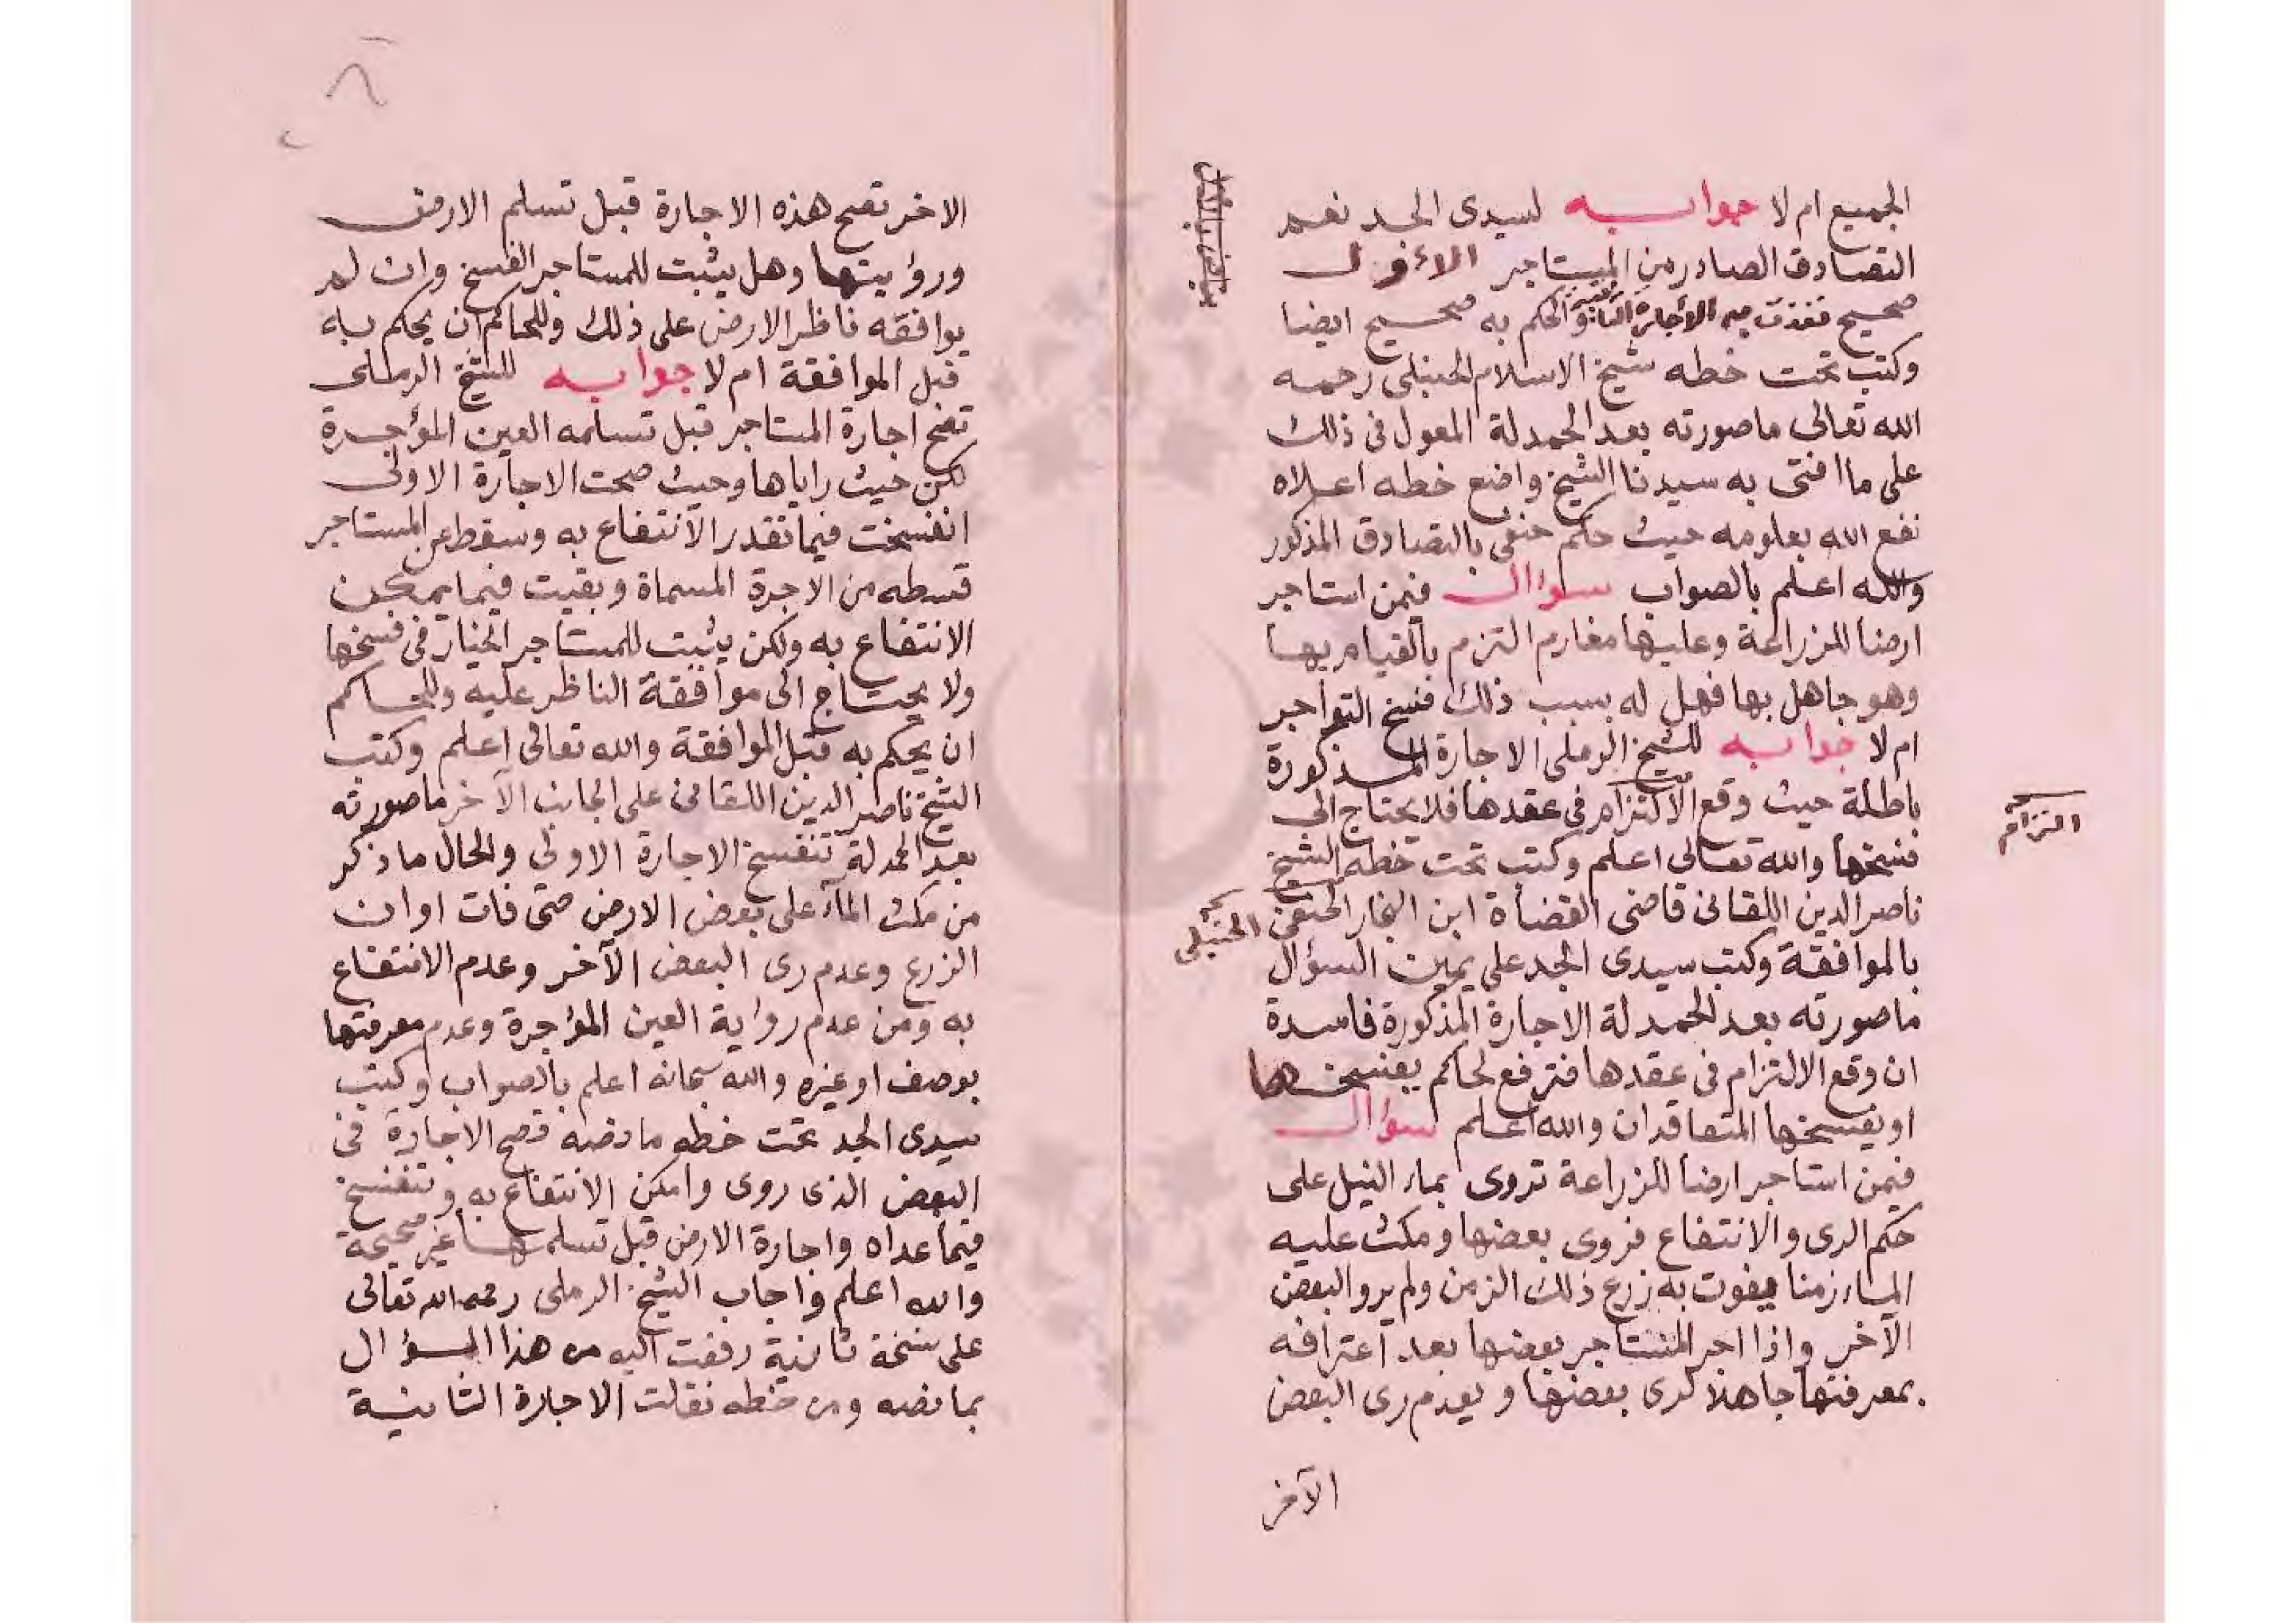 الجميع ام لا جوابه لسيدى الجد نعم
التصادق الصادر من المستاجر الاول
صحيح فنفذت الاجارة الثانية والحكم به صحيح ايضا
وكتب تحت خطه شيخ الاسلام الحنبلى رحمه
الله تعالى ماصورته بعد الحمدلة المعول فى ذلك
على ما افتى به سيدنا الشيخ واضع خطه اعلاه
نفع الله بعلومه حيث حكم حنفى بالتصادق المذكور
والله اعلم بالصواب سؤال فيمن استاجر
ارضا للزراعة وعليها مغارم التزم بالقيام بها
وهو جاهل بها فهل له بسبب ذلك فسخ التواجر
ام لا جوابه للشيخ الرملى الاجارة المذكورة
باطلة حيث وقع الالتزام فى عقدها فلا يحتاج الى
التزام
فسخها والله تعالى اعلم وكتب تحت خطه الشيخ
ناصر الدين اللقانى قاضى القضاة ابن النجار الحنفى
الحنبلى
بالموافقة وكتب سيدى الجد على يمين السؤال
ماصورته بعد الحمدلة الاجارة المذكورة فاسدة
ان وقع الالتزام فى عقدها فترفع لحاكم يفسخها
او يفسخها المتعاقدان والله اعلم سؤال
فيمن استاجر ارضا للزراعة تروى بماء النيل على
حكم الرى والانتفاع فروى بعضها ومكث عليه
الماء زمنا يفوت به زرع ذلك الزمن ولم يرو البعض
الآخر واذا اجر المستاجر بعضها بعد اعترافه
بمعرفتها جاهلا لرى بعضها وبعدم رى البعض
الآخر
٨
الاخر تصح هذه الاجارة قبل تسلم الارض
ورؤيتها وهل يثبت للمستاجر الفسخ وان لم
يوافقه ناظر الارض على ذلك وللحاكم ان يحكم به
قبل الموافقة ام لا جوابه للشيخ الرملى
تصح اجارة المستاجر قبل تسلمه العين المؤجرة
لكن حيث راياها وحيث صحت الاجارة الاولى
انفسخت فيما تقدر الانتفاع به وسقط عن المستاجر
قسطه من الاجرة المسماة وبقيت فيما يمكن
الانتفاع به ولكن يثبت للمستاجر الخيار فى فسخها
ولا يحتاج الى موافقة الناظر عليه وللحاكم
ان يحكم به قبل الموافقة والله تعالى اعلم وكتب
الشيخ ناصر الدين اللقانى على الجانب الآخر ماصورته
بعد الحمدلة تنفسخ الاجارة الاولى والحال ما ذكر
من مكث الماء على بعض الارض حتى فات اوان
الزرع وعدم رى البعض الآخر وعدم الانتفاع
به ومن عدم رواية العين المؤجرة وعدم معرفتها
بوصف او غيره والله سبحانه اعلم بالصواب وكتب
سيدى الجد تحت خطه ما نصه تصح الاجارة فى
البعض الذى روى وامكن الانتفاع به وتنفسخ
فيما عداه واجارة الارض قبل تسلمها غير صحيحة
والله اعلم واجاب الشيخ الرملى رحمه الله تعالى
على نسخة ثانية رفعت اليه من هذا السؤال
بما نصه ومن خطه نقلت الاجارة الثانية